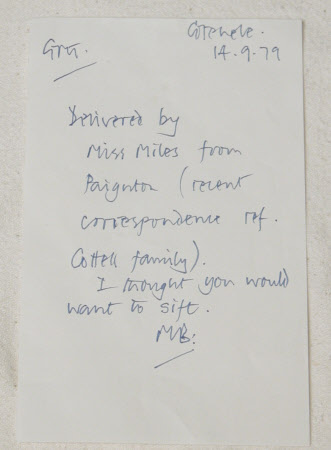 Cotehele.
14.9.79
Delivered by
Miss Miles from
Paignton (recent
correspondence ref.
Cottell family).
I thought you would
want to sift.
MB.